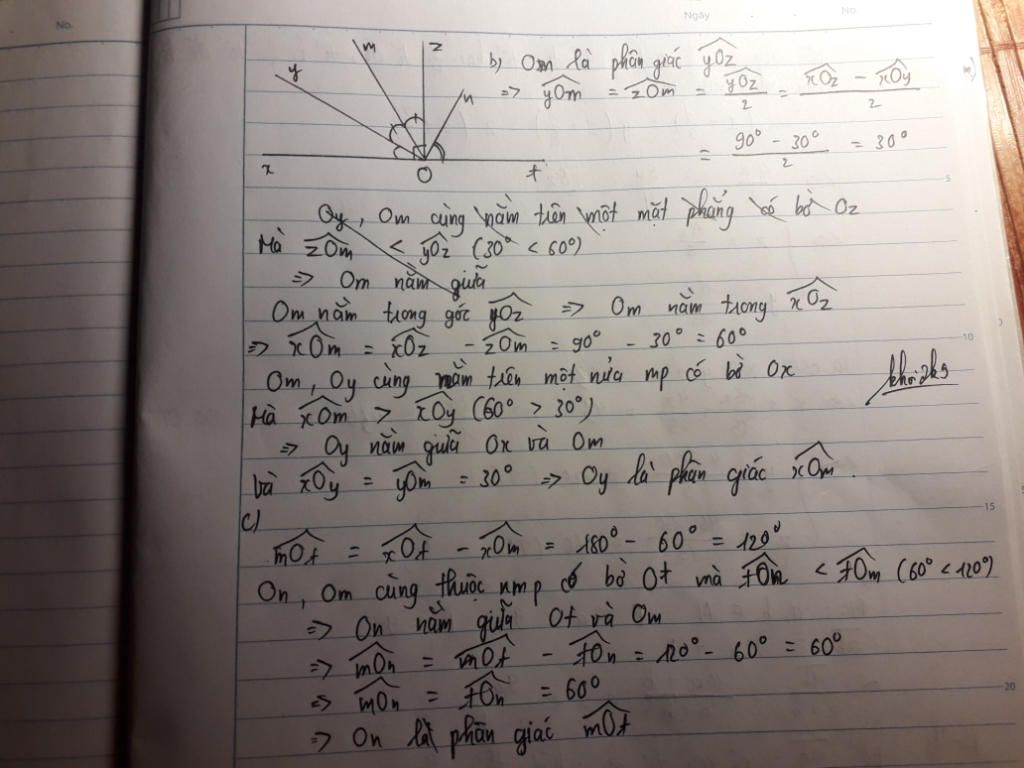 No.
Ngày
No.
m
z
y
n
x
O
t
b) Om là phân giác yOz
=> yOm = zOm = yOz/2 = (xOz - xOy)/2
= (90° - 30°)/2 = 30°
Oy, Om cùng nằm trên một mặt phẳng có bờ Oz
Mà zOm < yOz (30° < 60°)
=> Om nằm giữa
Om nằm trong góc yOz => Om nằm trong xOz
=> xOm = xOz - zOm = 90° - 30° = 60°
Om, Oy cùng nằm trên một nửa mp có bờ Ox
khoi2k9
Mà xOm > xOy (60° > 30°)
=> Oy nằm giữa Ox và Om
Và xOy = yOm = 30° => Oy là phân giác xOm.
c)
mOt = xOt - xOm = 180° - 60° = 120°
On, Om cùng thuộc nmp có bờ Ot mà tOn < tOm (60° < 120°)
=> On nằm giữa Ot và Om
=> mOn = mOt - tOn = 120° - 60° = 60°
=> mOn = tOn = 60°
=> On là phân giác mOt
5
10
15
20